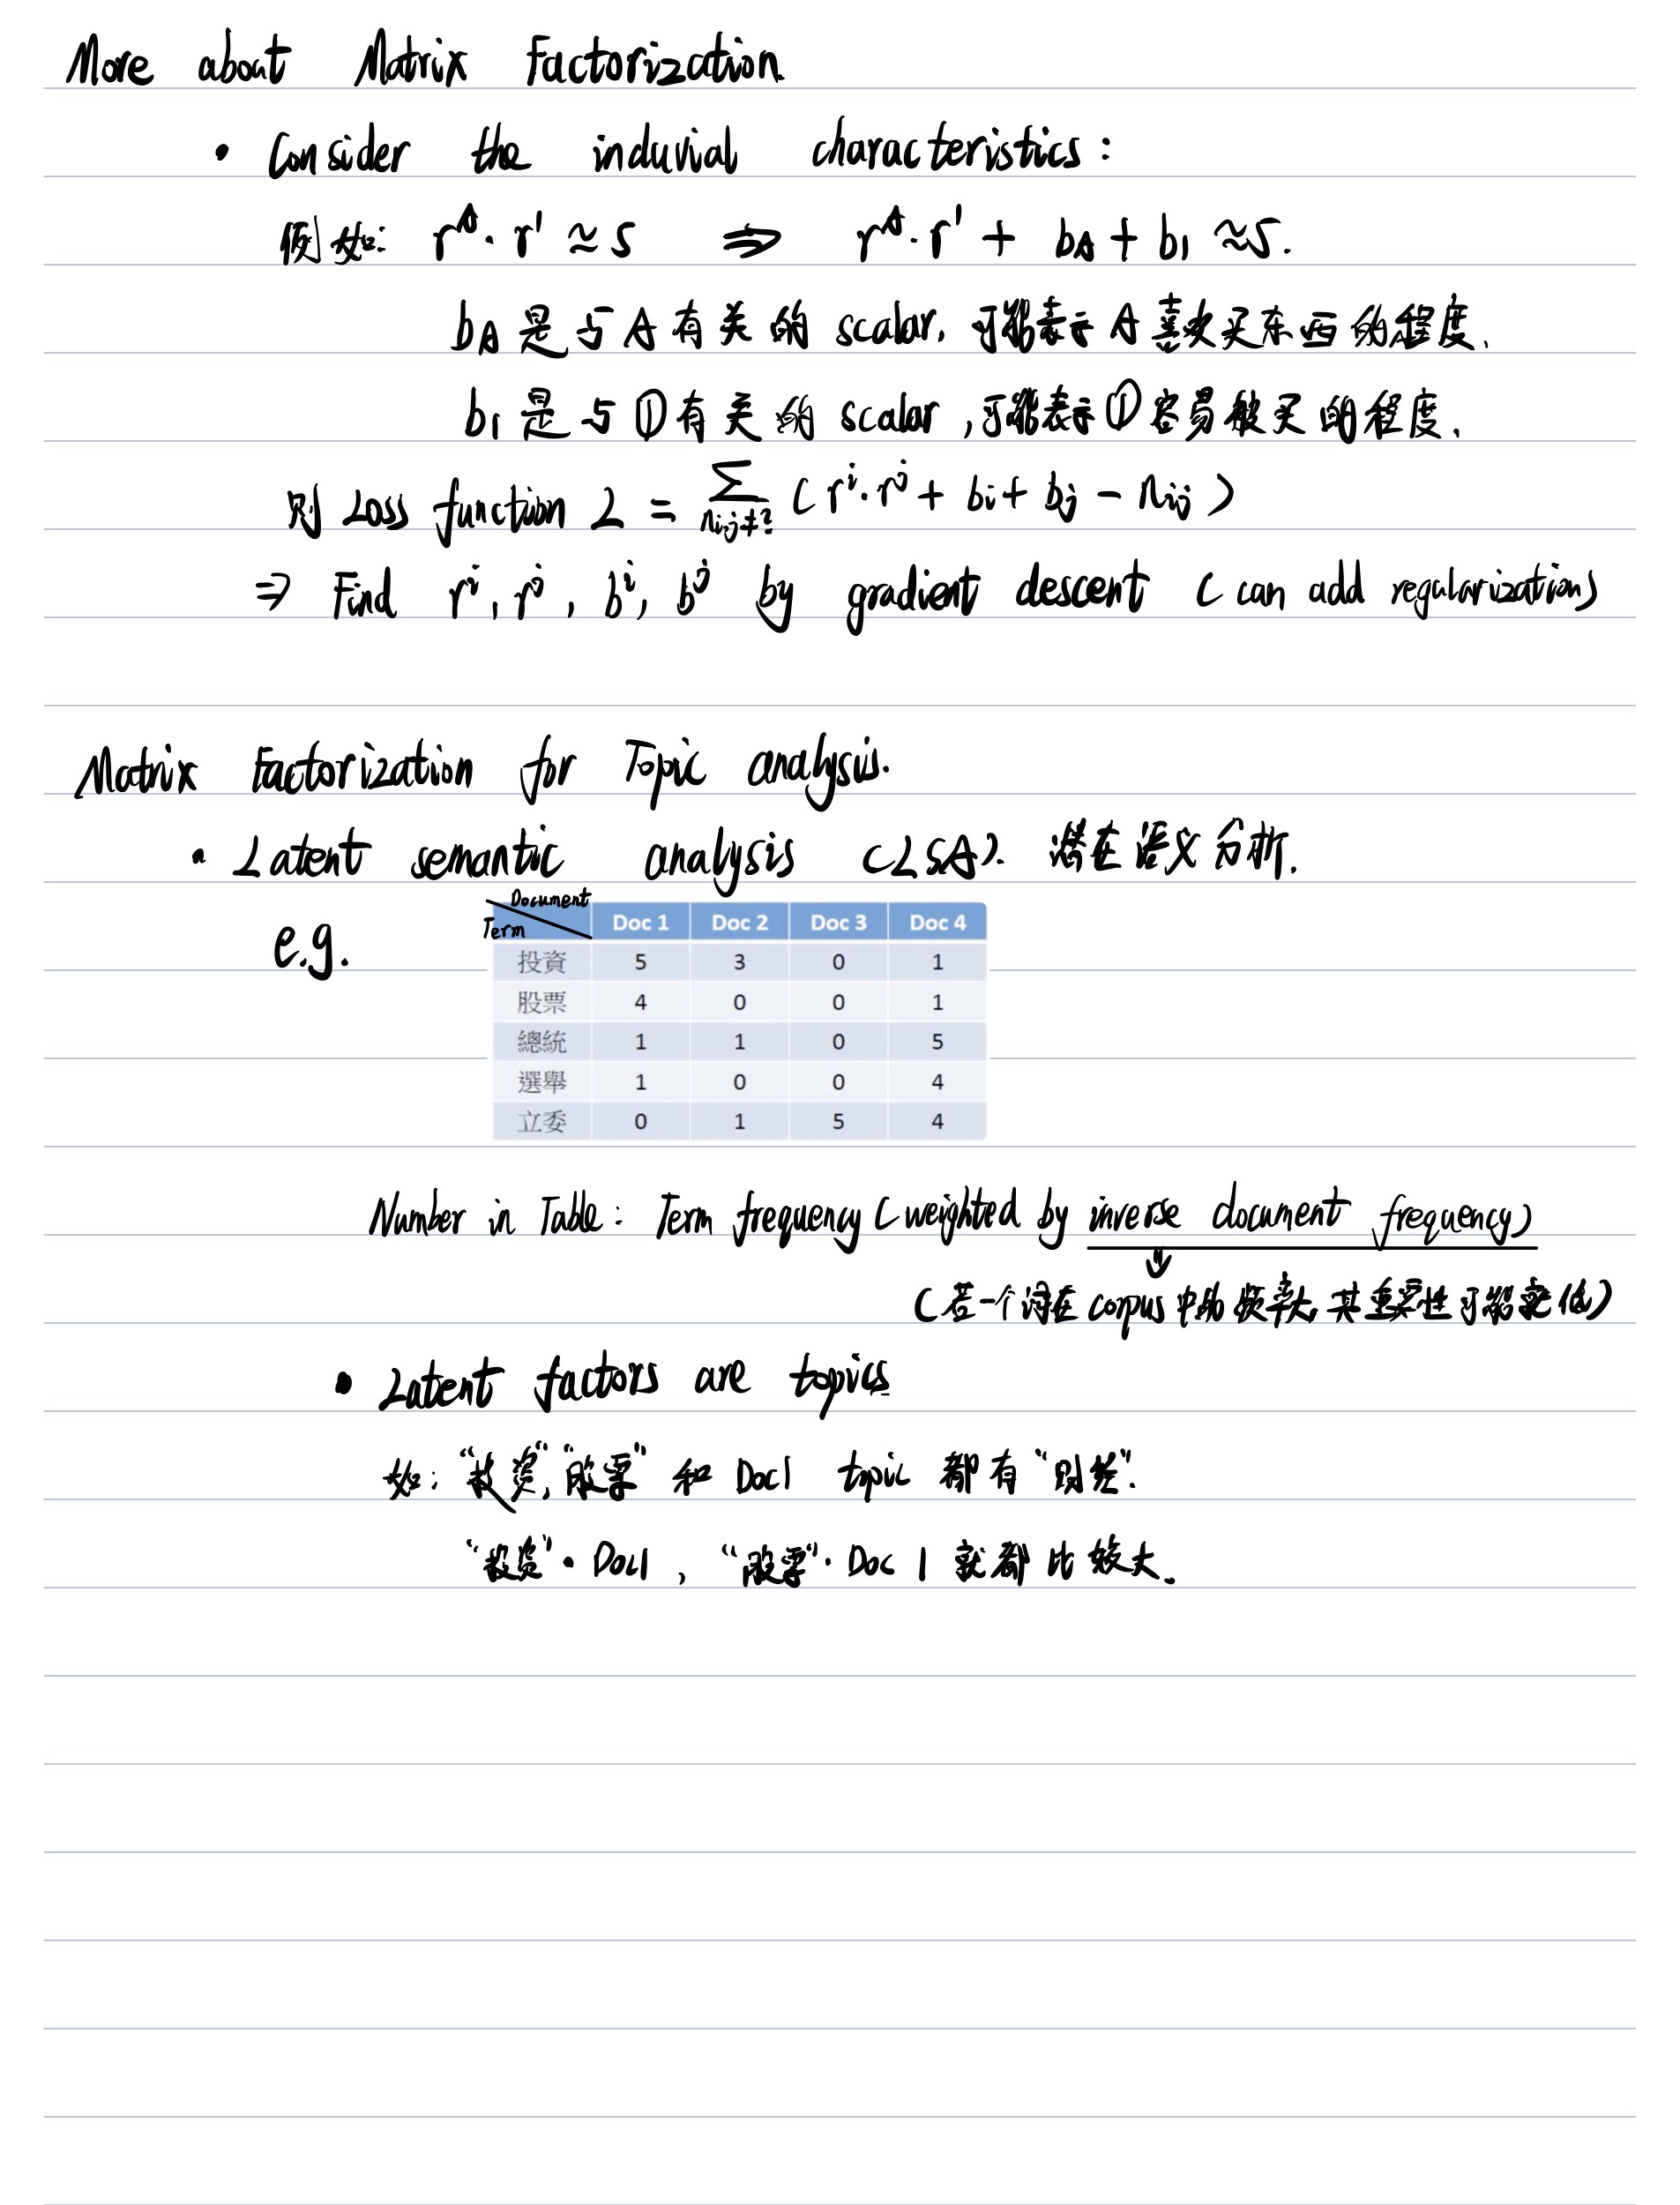 More about Matrix Factorization.
• Consider the induvial characteristics:
例如: r^A · r^1 ≈ 5 ⇒ r^A · r^1 + b_A + b_1 ≈ 5.
b_A 是与 A 有关的 scalar, 可能表示 A 喜欢买东西的程度.
b_1 是与 ① 有关的 scalar, 可能表示 ① 容易被买的程度.
则 Loss function L = ∑_{n_ij ≠ ?} (r^i · r^j + b_i + b_j - n_ij)
⇒ Find r^i, r^j, b^i, b^j by gradient descent (can add regularization)
Matrix Factorization for Topic analysis.
• Latent semantic analysis (LSA). 潜在语义分析.
e.g.
Document
Term Doc 1 Doc 2 Doc 3 Doc 4
投資 5 3 0 1
股票 4 0 0 1
總統 1 1 0 5
選舉 1 0 0 4
立委 0 1 5 4
Number in Table: Term frequency (weighted by inverse document frequency)
(若一个词在 corpus 中的频率大, 其重要性可能更低)
• Latent factors are topics
如: "投资", "股票" 和 Doc1 topic 都有 "财经".
"投资" · Doc1, "股票" · Doc 1 就都比较大.